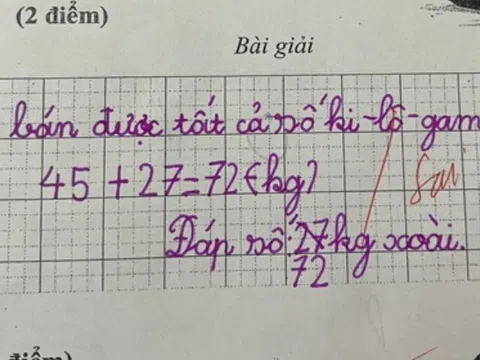 (2 điểm)
Bài giải
bán được tất cả số ki-lô-gam
45 + 27 = 72 (kg)
Sai
Đáp số: 27 kg xoài.
72
điểm)